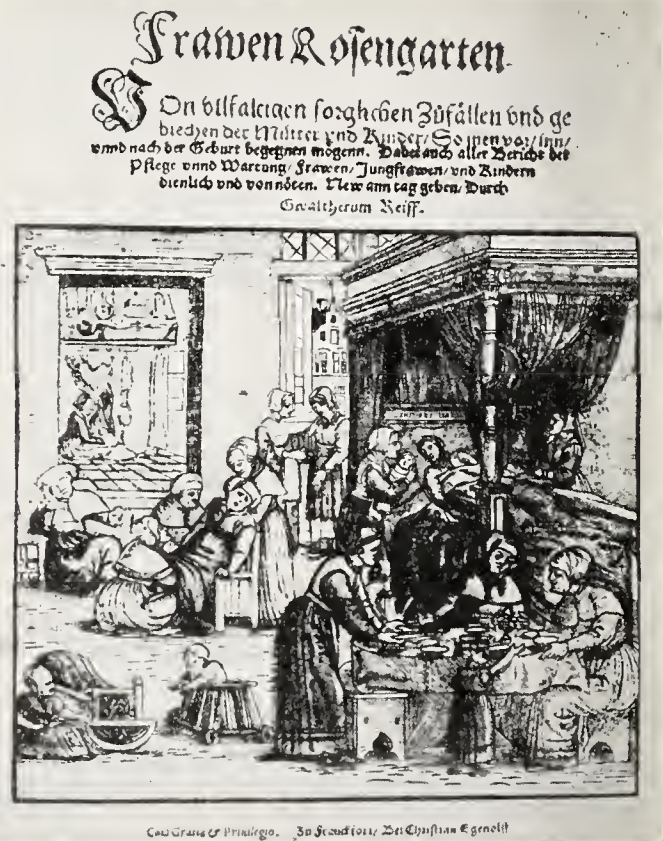 Frawen Rosengarten.
Von vilfaltigen sorglichen Zůfällen vnd ge
brechen der Mütter vnd Kinder/ So jnen vor/ inn/
vnnd nach der Geburt begegnen mögenn. Dabei auch aller Bericht der
Pflege vnnd Wartung/ Frawen/ Jungfrawen/ vnd Kindern
dienlich vnd von nöten. New ann tag geben/ Durch
Gwaltherum Reiff.
Cum Gratia & Priuilegio. Zu Franckfort/ Bei Christian Egenolff